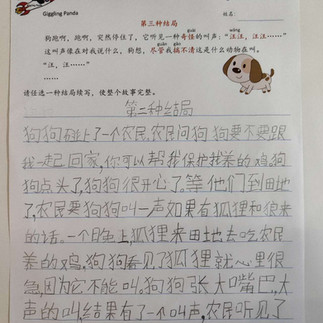 Giggling Panda
姓名：
第三种结局
狗跑啊，跑啊，突然停住了，它听见一种奇怪的叫声：“汪汪，汪汪……”
这叫声像在对我说什么，狗想，尽管我搞不清这是什么动物在叫。
“汪，汪……”
……
请任选一种结局续写，使整个故事完整。
第二种结局
狗狗碰上了一个农民，农民问狗狗要不要跟
我一起回家，你可以帮我保护我养的鸡。狗
狗点头了，狗狗很开心了。等他们到田地
了，农民要狗狗叫一声如果有狐狸和狼来
的话。一个晚上，狐狸来田地去吃农民
养的鸡，狗狗看见了狐狸就心里很
急因为它不能叫。狗狗张大嘴巴，大
声的叫，结果有了一个叫声，农民听见了